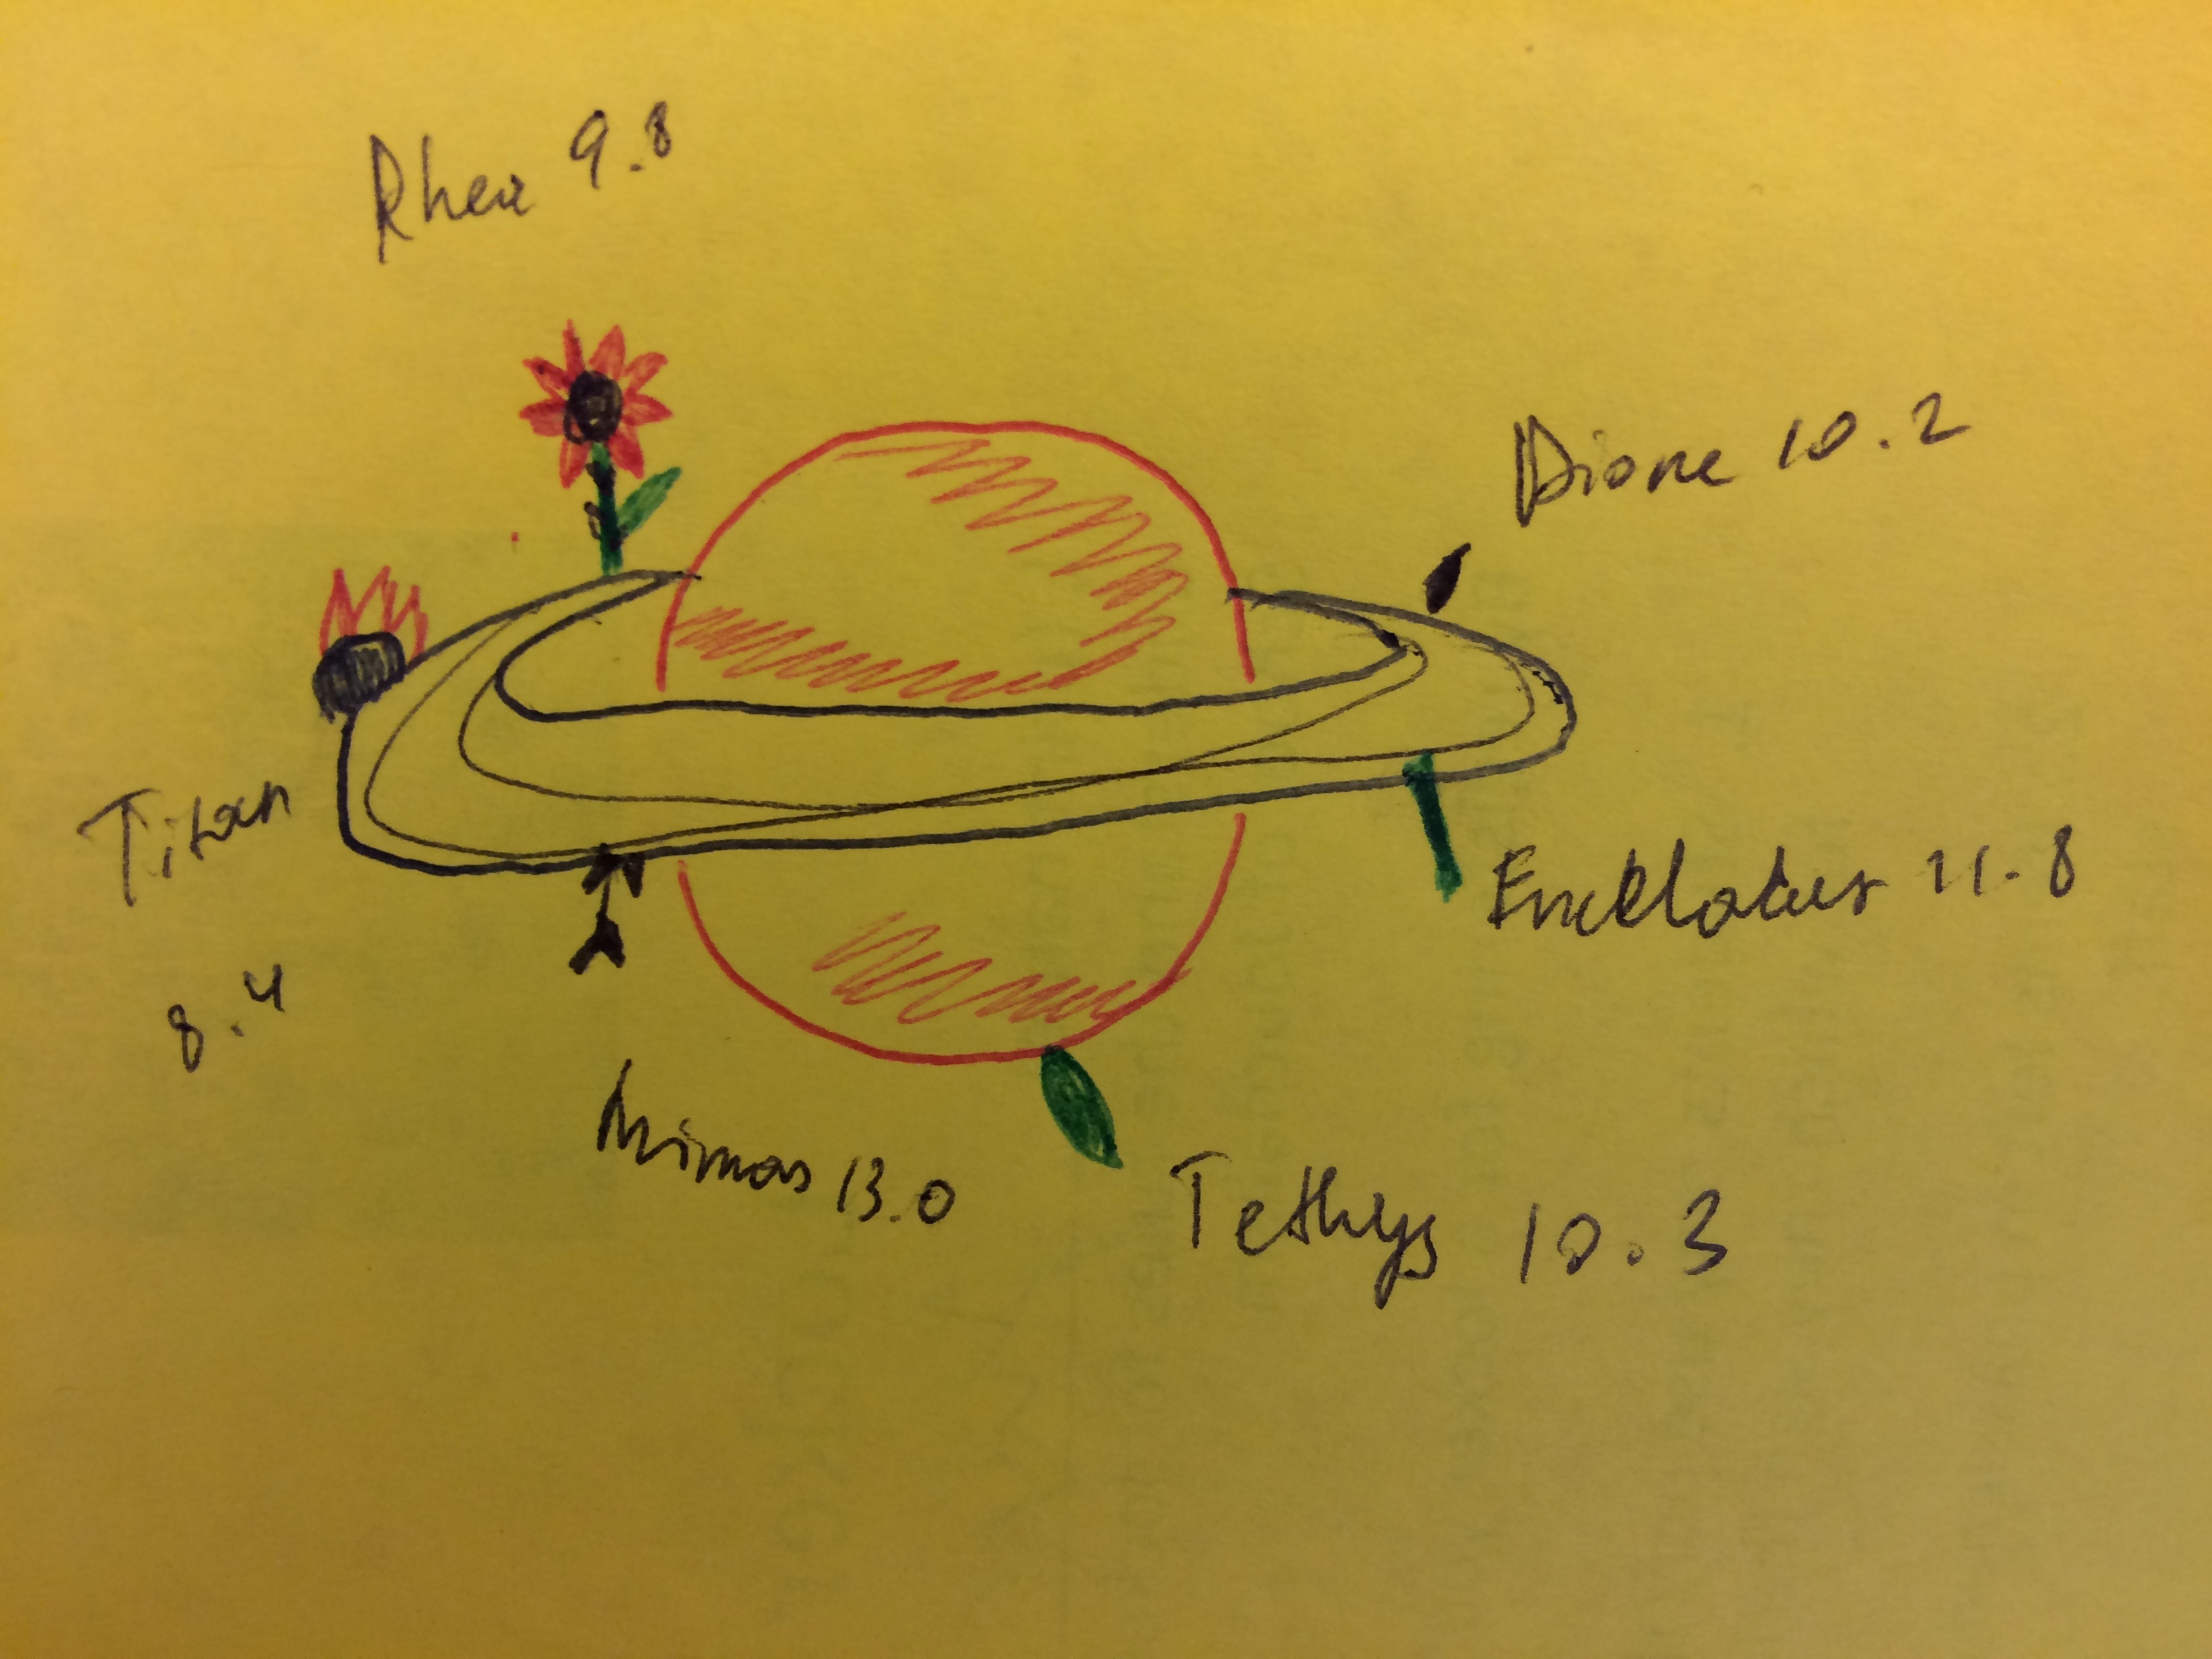 Rhea 9.8
Dione 10.2
Titan
8.4
Encelladus 11.8
Mimas 13.0
Tethys 10.3